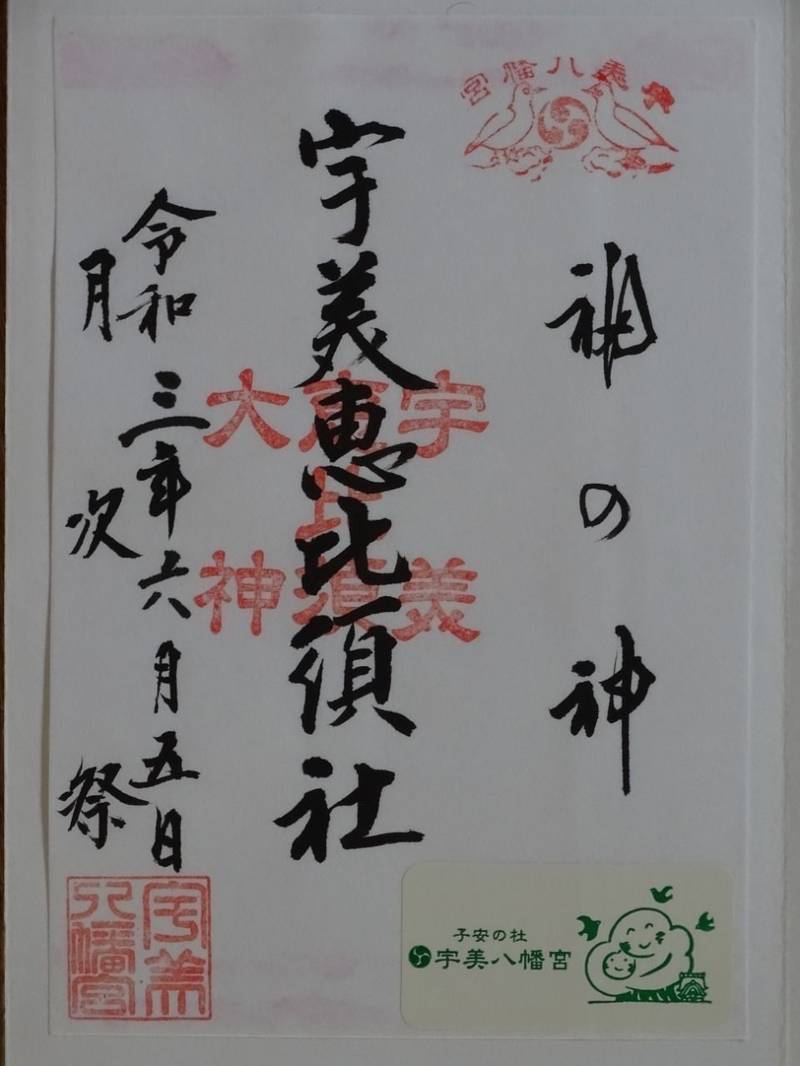 宇美八幡宮
福の神
宇美恵比須社
宇美
恵比須
大神
令和三年六月五日
月次祭
宇美
八幡宮
子安の社
宇美八幡宮